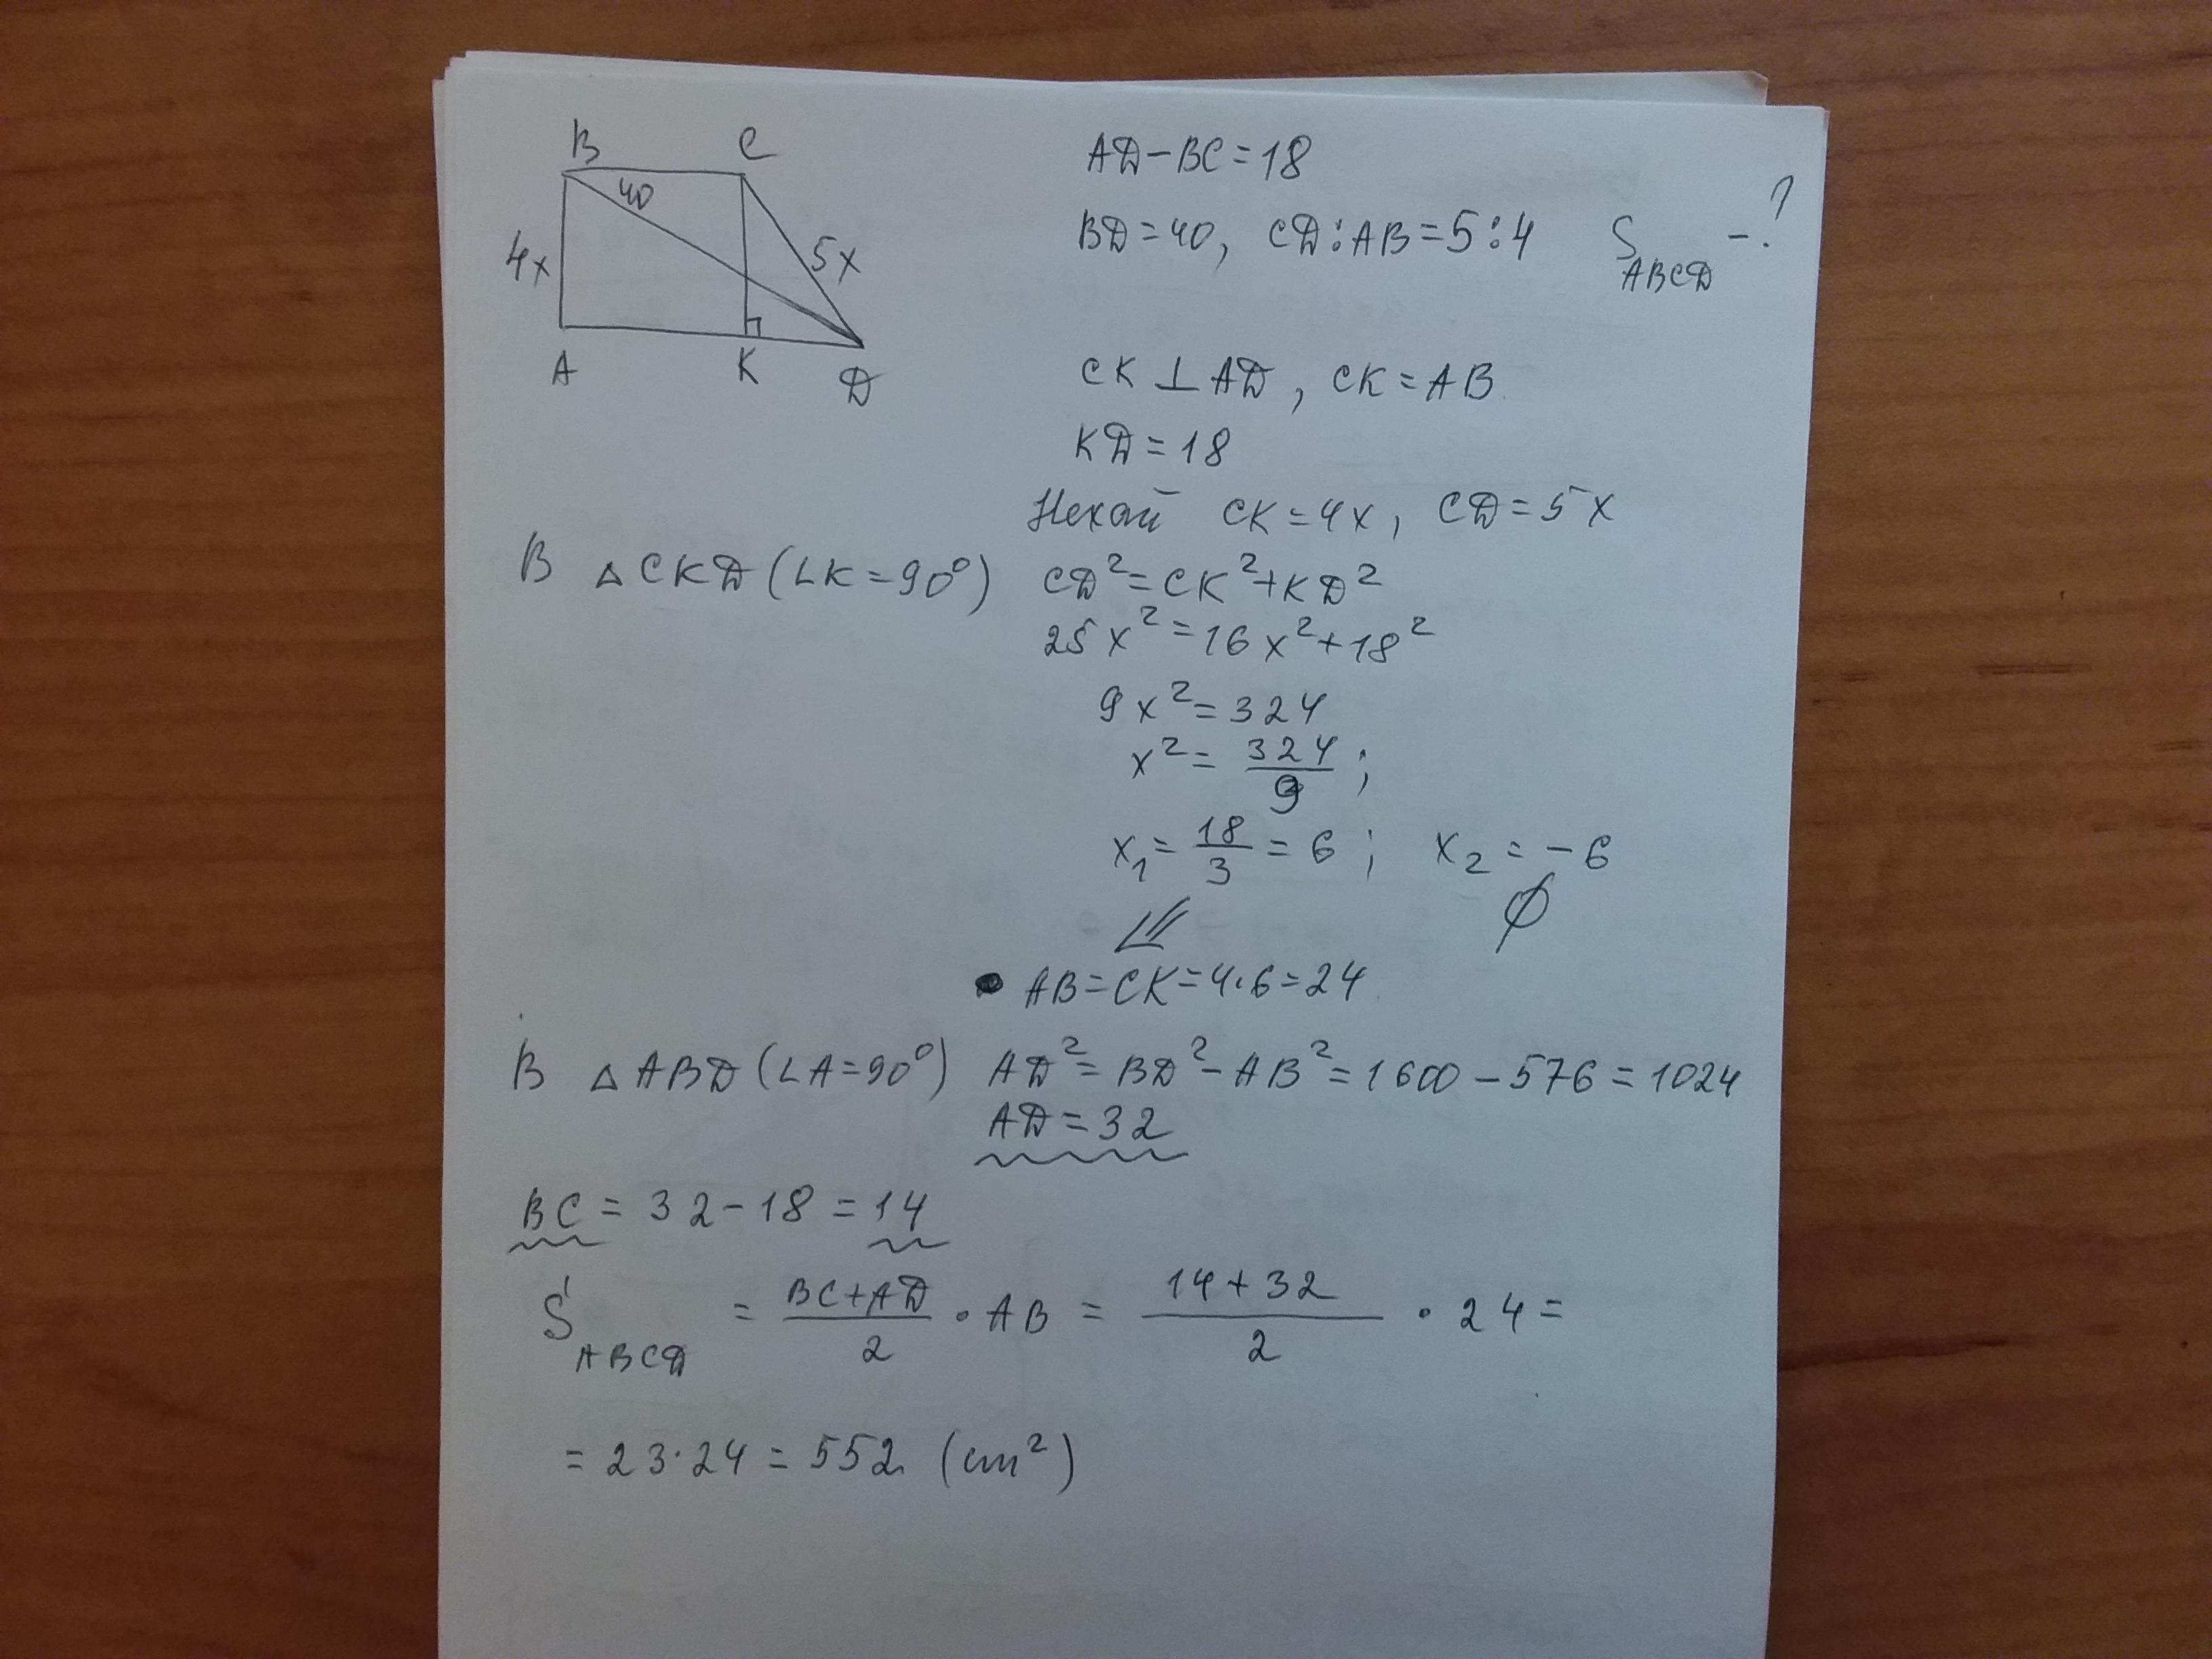 B C
40
4x 5x
A K D
AD-BC=18
BD=40, CD:AB=5:4 S ABCD -?
CK ⊥ AD, CK=AB
KD=18
Нехай CK=4x, CD=5x
В △CKD (∠K=90°) CD²=CK²+KD²
25x²=16x²+18²
9x²=324
x²=324/9;
x₁=18/3=6; x₂=-6
∅
⇙
AB=CK=4·6=24
В △ABD (∠A=90°) AD²=BD²-AB²=1600-576=1024
AD=32
BC=32-18=14
S ABCD = (BC+AD)/2 · AB = (14+32)/2 · 24=
=23·24=552 (cm²)